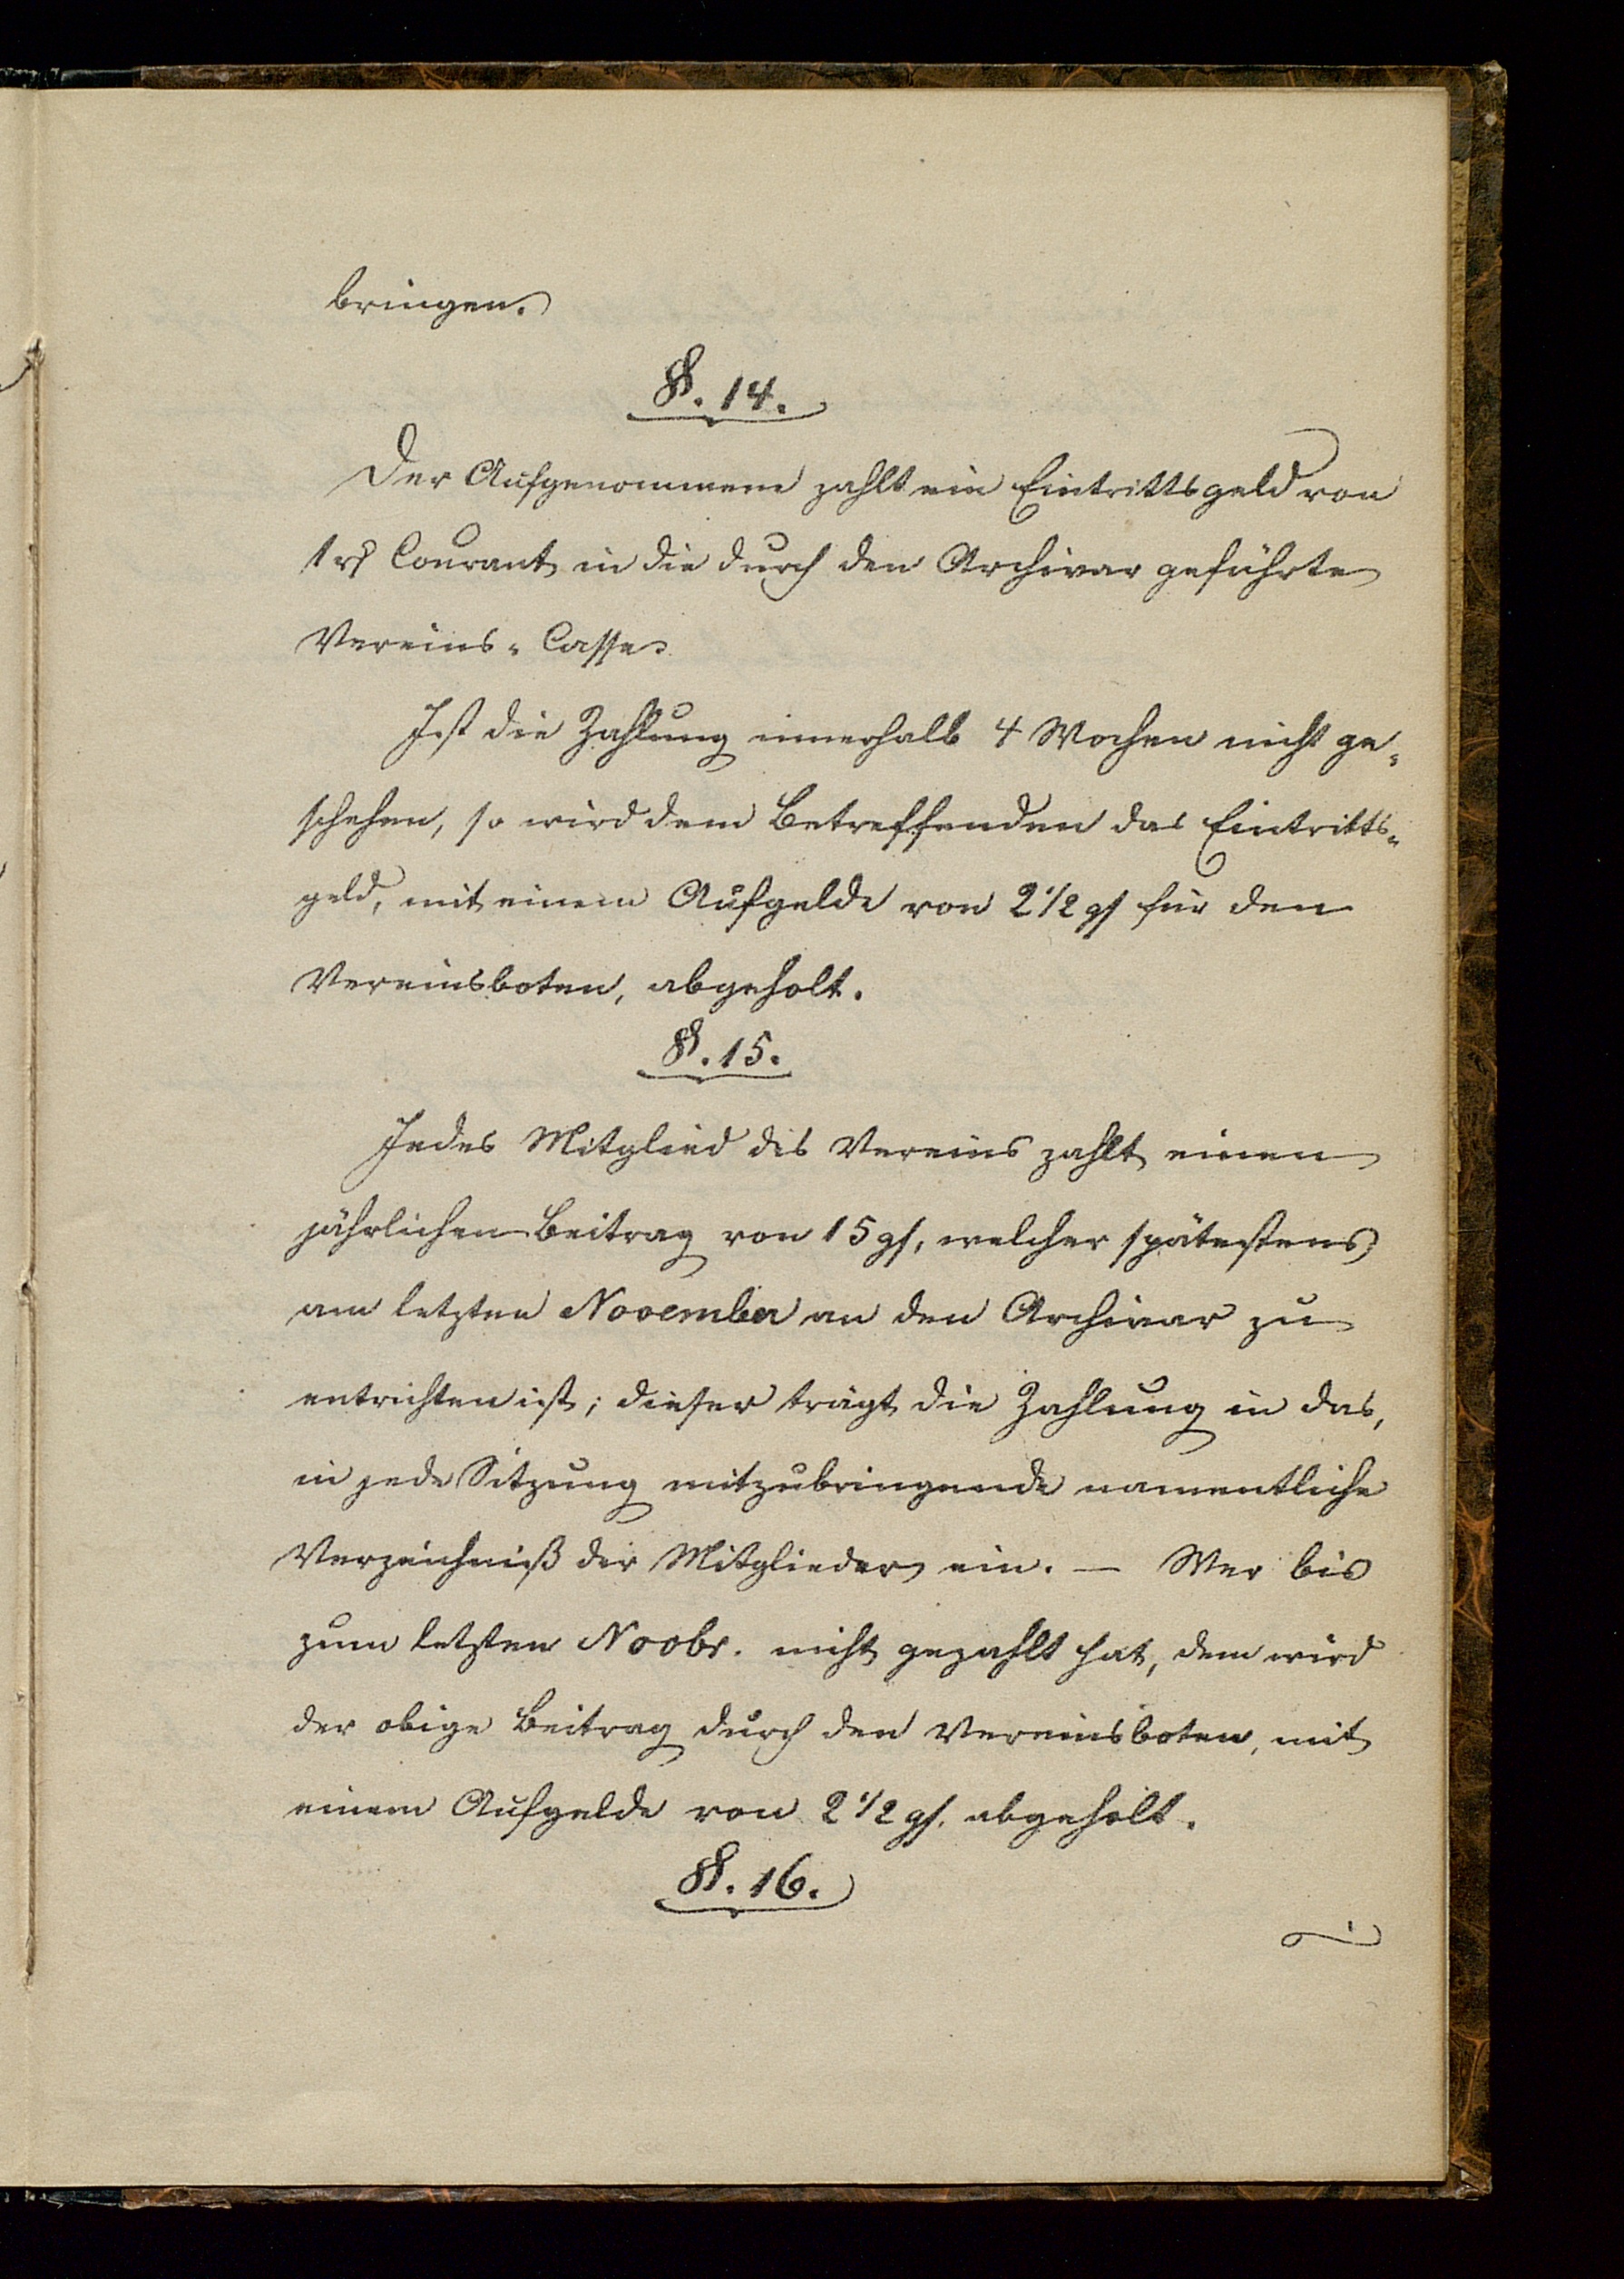 bringen.
§. 14.
Der Aufgenommene zahlt ein Eintrittsgeld von
1 rℓ Courant in die durch den Archivar geführte
Vereins-Casse.
Ist die Zahlung innerhalb 4 Wochen nicht ge-
schehen, so wird dem Betreffenden das Eintritts-
geld, mit einem Aufgelde von 2 1/2 gs für den
Vereinsboten, abgeholt.
§. 15.
Jedes Mitglied des Vereins zahlt einen
jährlichen Beitrag von 15 gs, welcher spätestens
am letzten November an den Archivar zu
entrichten ist; dieser trägt die Zahlung in das,
in jede Sitzung mitzubringende namentliche
Verzeichniß der Mitglieder ein. — Wer bis
zum letzten Novbr. nicht gezahlt hat, dem wird
der obige Beitrag durch den Vereinsboten, mit
einem Aufgelde von 2 1/2 gs. abgeholt.
§. 16.